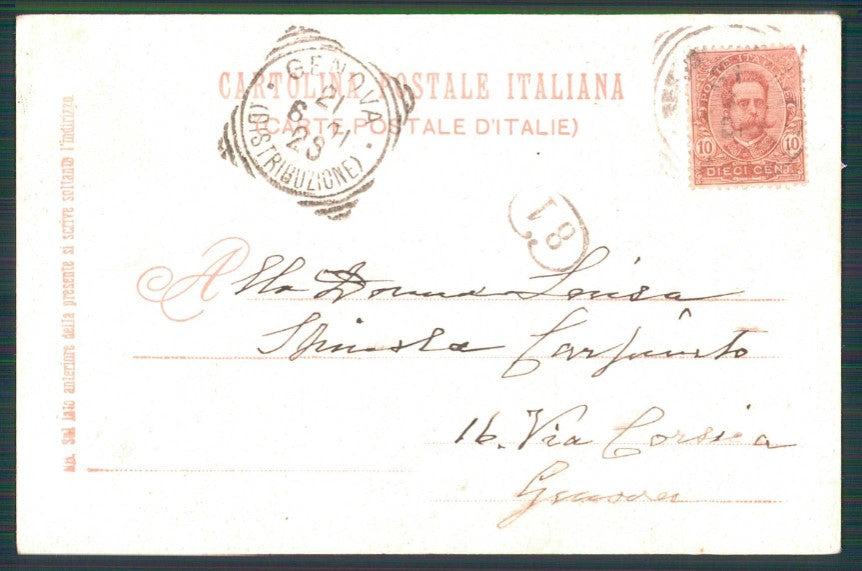 CARTOLINA POSTALE ITALIANA
(CARTE POSTALE D'ITALIE)
GENOVA
21
6 21
(DISTRIBUZIONE)
10 10
DIECI CENT.
18
Alla Donna Luisa
Spinola
16. Via Corsica
Genova
NB. Sul lato anteriore della presente si scrive soltanto l'indirizzo